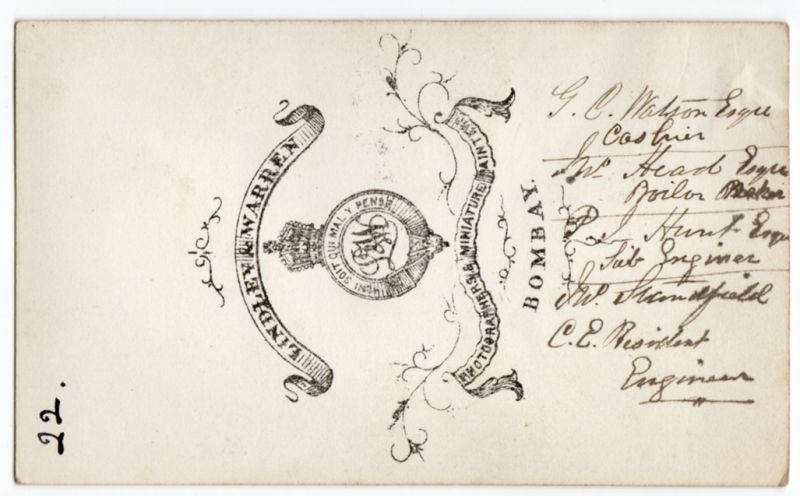 LINDLEY & WARREN
HONI SOIT QUI MAL Y PENSE
PHOTOGRAPHERS & MINIATURE PAINTERS
BOMBAY.
G. C. Watson Esqre
Cashier
Jno. Head Esqre
Boiler Maker
P. J. Hunt Esqre
Sub Enginer
Jno. Standfield
C.E. Resident
Engineer
22.